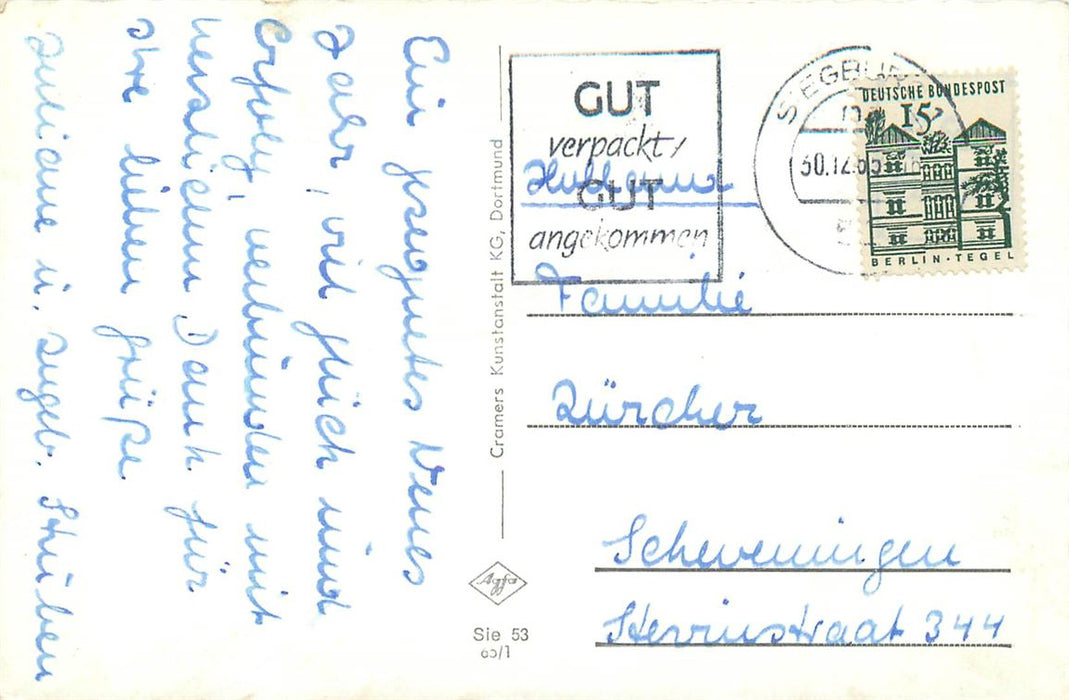 Ein gesegnetes Neues
Jahr, viel Glück und
Erfolg, verbunden mit
herzlichem Dank für
die lieben Grüße.
u. Angeh.
Cramers Kunstanstalt KG, Dortmund
Agfa
Sie 53
65/1
GUT
verpackt/
GUT
angekommen
SIEGBURG
30.12.65
DEUTSCHE BUNDESPOST
15
BERLIN-TEGEL
Familie
Zürcher
Scheveningen
Stevinstraat 344